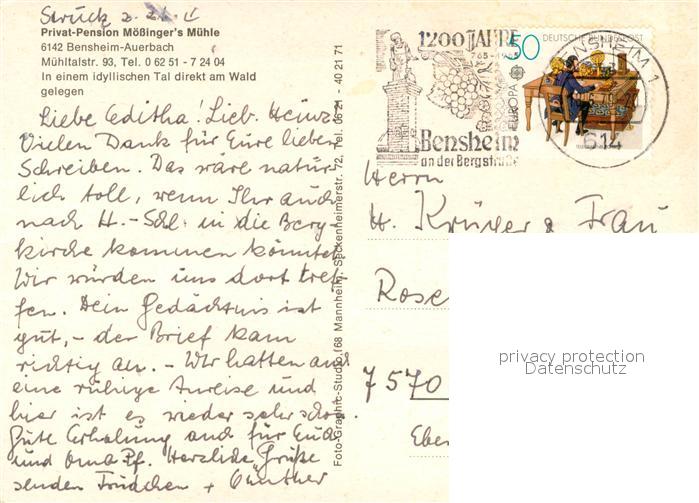 Struck z. Zt.
Privat-Pension Mößinger's Mühle
6142 Bensheim-Auerbach
Mühltalstr. 93, Tel. 0 62 51 - 7 24 04
In einem idyllischen Tal direkt am Wald
gelegen
Liebe Editha! Lieb. Heinz
Vielen Dank für Eure lieben
Schreiben. Das wäre natür-
lich toll, wenn Ihr auch
nach H.- in die Berg-
kirche kommen könntet
Wir würden uns dort tref-
fen. Dein Gedächtnis ist
gut, - der Brief kam
richtig an. - Wir hatten auch
eine ruhige Anreise und
hier ist es wieder sehr schön.
Gute Erholung auch für Euch
und Oma Pf. Herzliche Grüße
senden Trudchen + Günther
Foto-Graphic-Studio, 68 Mannheim, Seckenheimerstr. 72, Tel. 06 21 - 40 21 71
1200 JAHRE
765-
Bensheim
an der Bergstraße
50
DEUTSCHE BUNDESPOST
EUROPA
BENSHEIM 1
614
Herrn
H. Krüger & Frau
Rose
7570
Ebe
privacy protection
Datenschutz